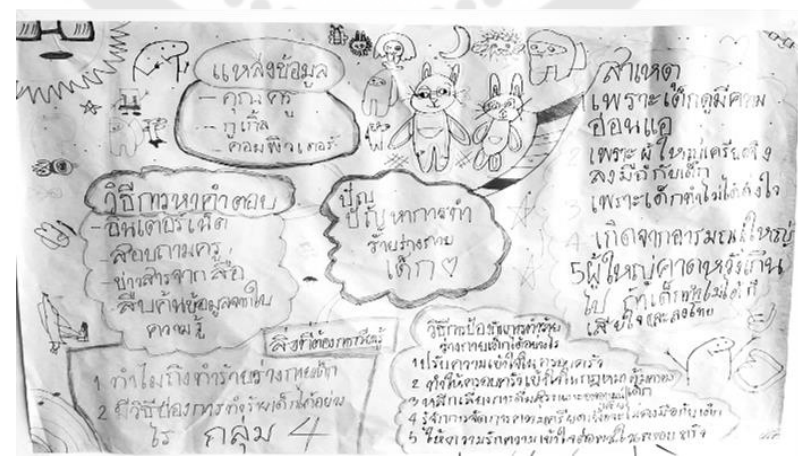 แหล่งข้อมูล
- คุณครู
- กูเกิ้ล
- คอมพิวเตอร์
วิธีการหาคำตอบ
- อินเตอร์เน็ต
- สอบถามครู
- ข่าวสารจาก สื่อ
- สืบค้นข้อมูลจากใบ
ความรู้
ปัญ
ปัญหาการทำ
ร้ายร่างกาย
เด็ก
สาเหตุ
เพราะเด็กดูมีความ
อ่อนแอ
2 เพราะผู้ใหญ่เครียดจึง
ลงมือกับเด็ก
3 เพราะเด็กทำไม่ได้ดั่งใจ
4 เกิดจากอารมณ์ผู้ใหญ่
5 ผู้ใหญ่คาดหวังเกิน
ไป ถ้าเด็กทำไม่ได้ก็
เสียใจและลงโทษ
สิ่งที่ต้องการเรียนรู้
1 ทำไมถึงทำร้ายร่างกายเด็ก
2 มีวิธีป้องการทำร้ายเด็กได้อย่าง
ไร กลุ่ม 4
วิธีการป้องกันการทำร้าย
ร่างกายเด็กได้อย่างไร
1 ปรับความเข้าใจในครอบครัว
2 ทำให้ครอบครัวเข้าใจในกฎหมายคุ้มครอง
เด็ก
3 หลีกเลี่ยงการดื่มสุรา
4 รู้จักการจัดการความเครียด
5 ให้ความรักความเข้าใจ